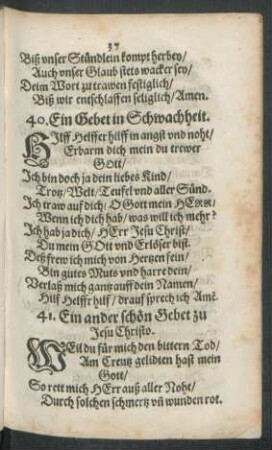 37
Biß vnser Stündlein kompt herbey/
Auch vnser Glaub stets wacker sey/
Deim Wort zu trawen festiglich/
Biß wir entschlaffen seliglich/ Amen.
40. Ein Gebet in Schwachheit.
HIlff Helffer hilff in angst vnd noht/
Erbarm dich mein du trewer
GOtt/
Ich bin doch ja dein liebes Kind/
Trotz/ Welt/ Teufel vnd aller Sünd.
Ich traw auf dich/ O Gott mein HERR/
Wenn ich dich hab/ was will ich mehr?
Ich hab ja dich/ HErr Jesu Christ/
Du mein GOtt vnd Erlöser bist.
Deß frew ich mich von Hertzen fein/
Bin gutes Muts vnd harre dein/
Verlaß mich gantz auff dein Namen/
Hilf Helffr hilf/ drauf sprech ich Amẽ.
41. Ein ander schön Gebet zu
Jesu Christo.
WEil du für mich den bittern Tod/
Am Creutz gelidten hast mein
Gott/
So rett mich HErr auß aller Noht/
Durch solchen schmertz vñ wunden rot.